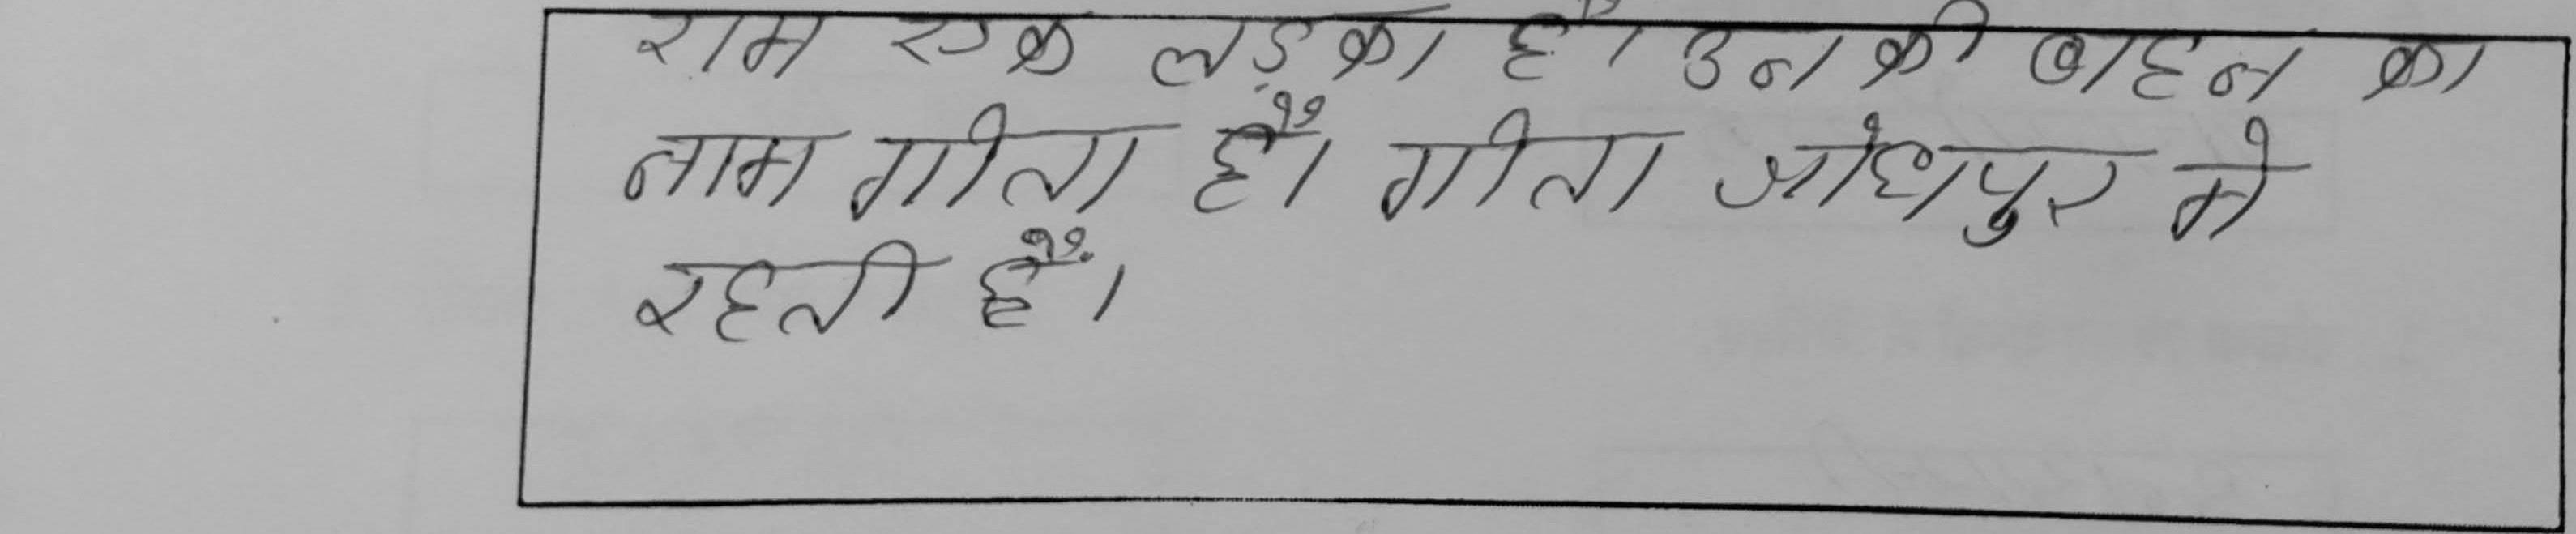 राम एक लड़का है। उनकी बाहन का
नाम गीता हैं। गीता जोधपुर मे
रहती हैं।